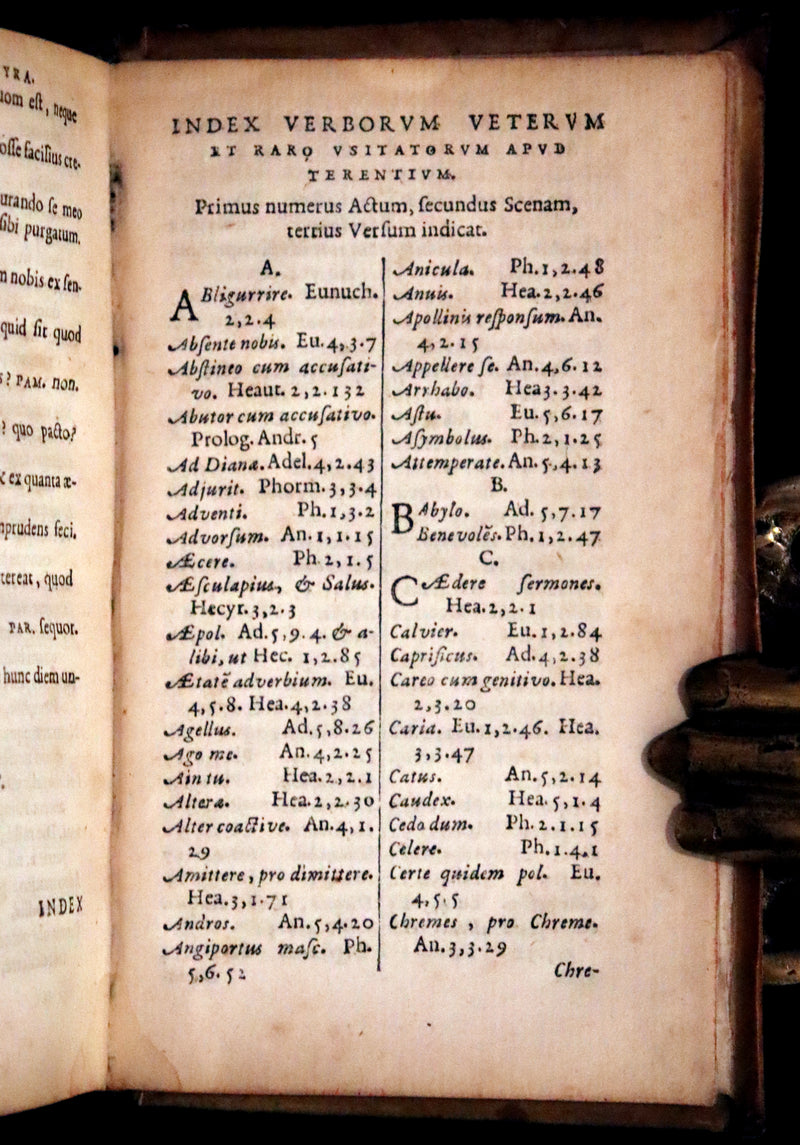 YRA.
uom est, neque
osse facilius cre-
urando se meo
sibi purgatum.
n nobis ex sen-
quid sit quod
? PAM. non.
? quo pacto?
ex quanta æ-
mprudens feci.
tereat, quod
PAR. sequor.
hunc diem un-
INDEX
INDEX VERBORVM VETERVM
ET RARO VSITATORVM APVD
TERENTIVM.
Primus numerus Actum, secundus Scenam,
tertius Versum indicat.
A.
ABligurrire. Eunuch.
2,2.4
Absente nobis. Eu.4,.3.7
Abstineo cum accusati-
vo. Heaut. 2,2.132
Abutor cum accusativo.
Prolog. Andr. 5
Ad Dianæ. Adel.4,2.43
Adjurit. Phorm. 3,3.4
Adventi. Ph.1,3.2
Advorsum. An.1,1.15
Æcere. Ph.2,1.5
Æsculapius, & Salus.
Hecyr.3,2.3
Æpol. Ad.5,9.4. & a-
libi, ut Hec. 1,2.85
Ætatẽ adverbium. Eu.
4,5.8. Hea.4,2.38
Agellus. Ad.5,8.26
Ago me. An.4,2.25
Ain tu. Hea.2,2.1
Alteræ. Hea.2,2.30
Alter coactive. An.4,1.
29
Amittere, pro dimittere.
Hea.3,1.71
Andros. An.5,4.20
Angiportus masc. Ph.
5,6.52
Anicula. Ph.1,2.48
Anuis. Hea.2,2.46
Apollinis responsum. An.
4,2.15
Appellere se. An.4,6.12
Arrhabo. Hea3.3.42
Astu. Eu.5,6.17
Asymbolus. Ph.2,1.25
Attemperate. An.5,4.13
B.
BAbylo. Ad. 5,7.17
Benevolẽs. Ph.1,2.47
C.
CÆdere sermones.
Hea.2,2.1
Calvier. Eu.1,2.84
Caprificus. Ad.4,2.38
Careo cum genitivo. Hea.
2,3.20
Caria. Eu.1,2.46. Hea.
3,3.47
Catus. An.5,2.14
Caudex. Hea.5,1.4
Cedo dum. Ph.2.1.15
Celere. Ph.1.4.1
Certe quidem pol. Eu.
4,5.5
Chremes, pro Chreme.
An.3,3.29
Chre-